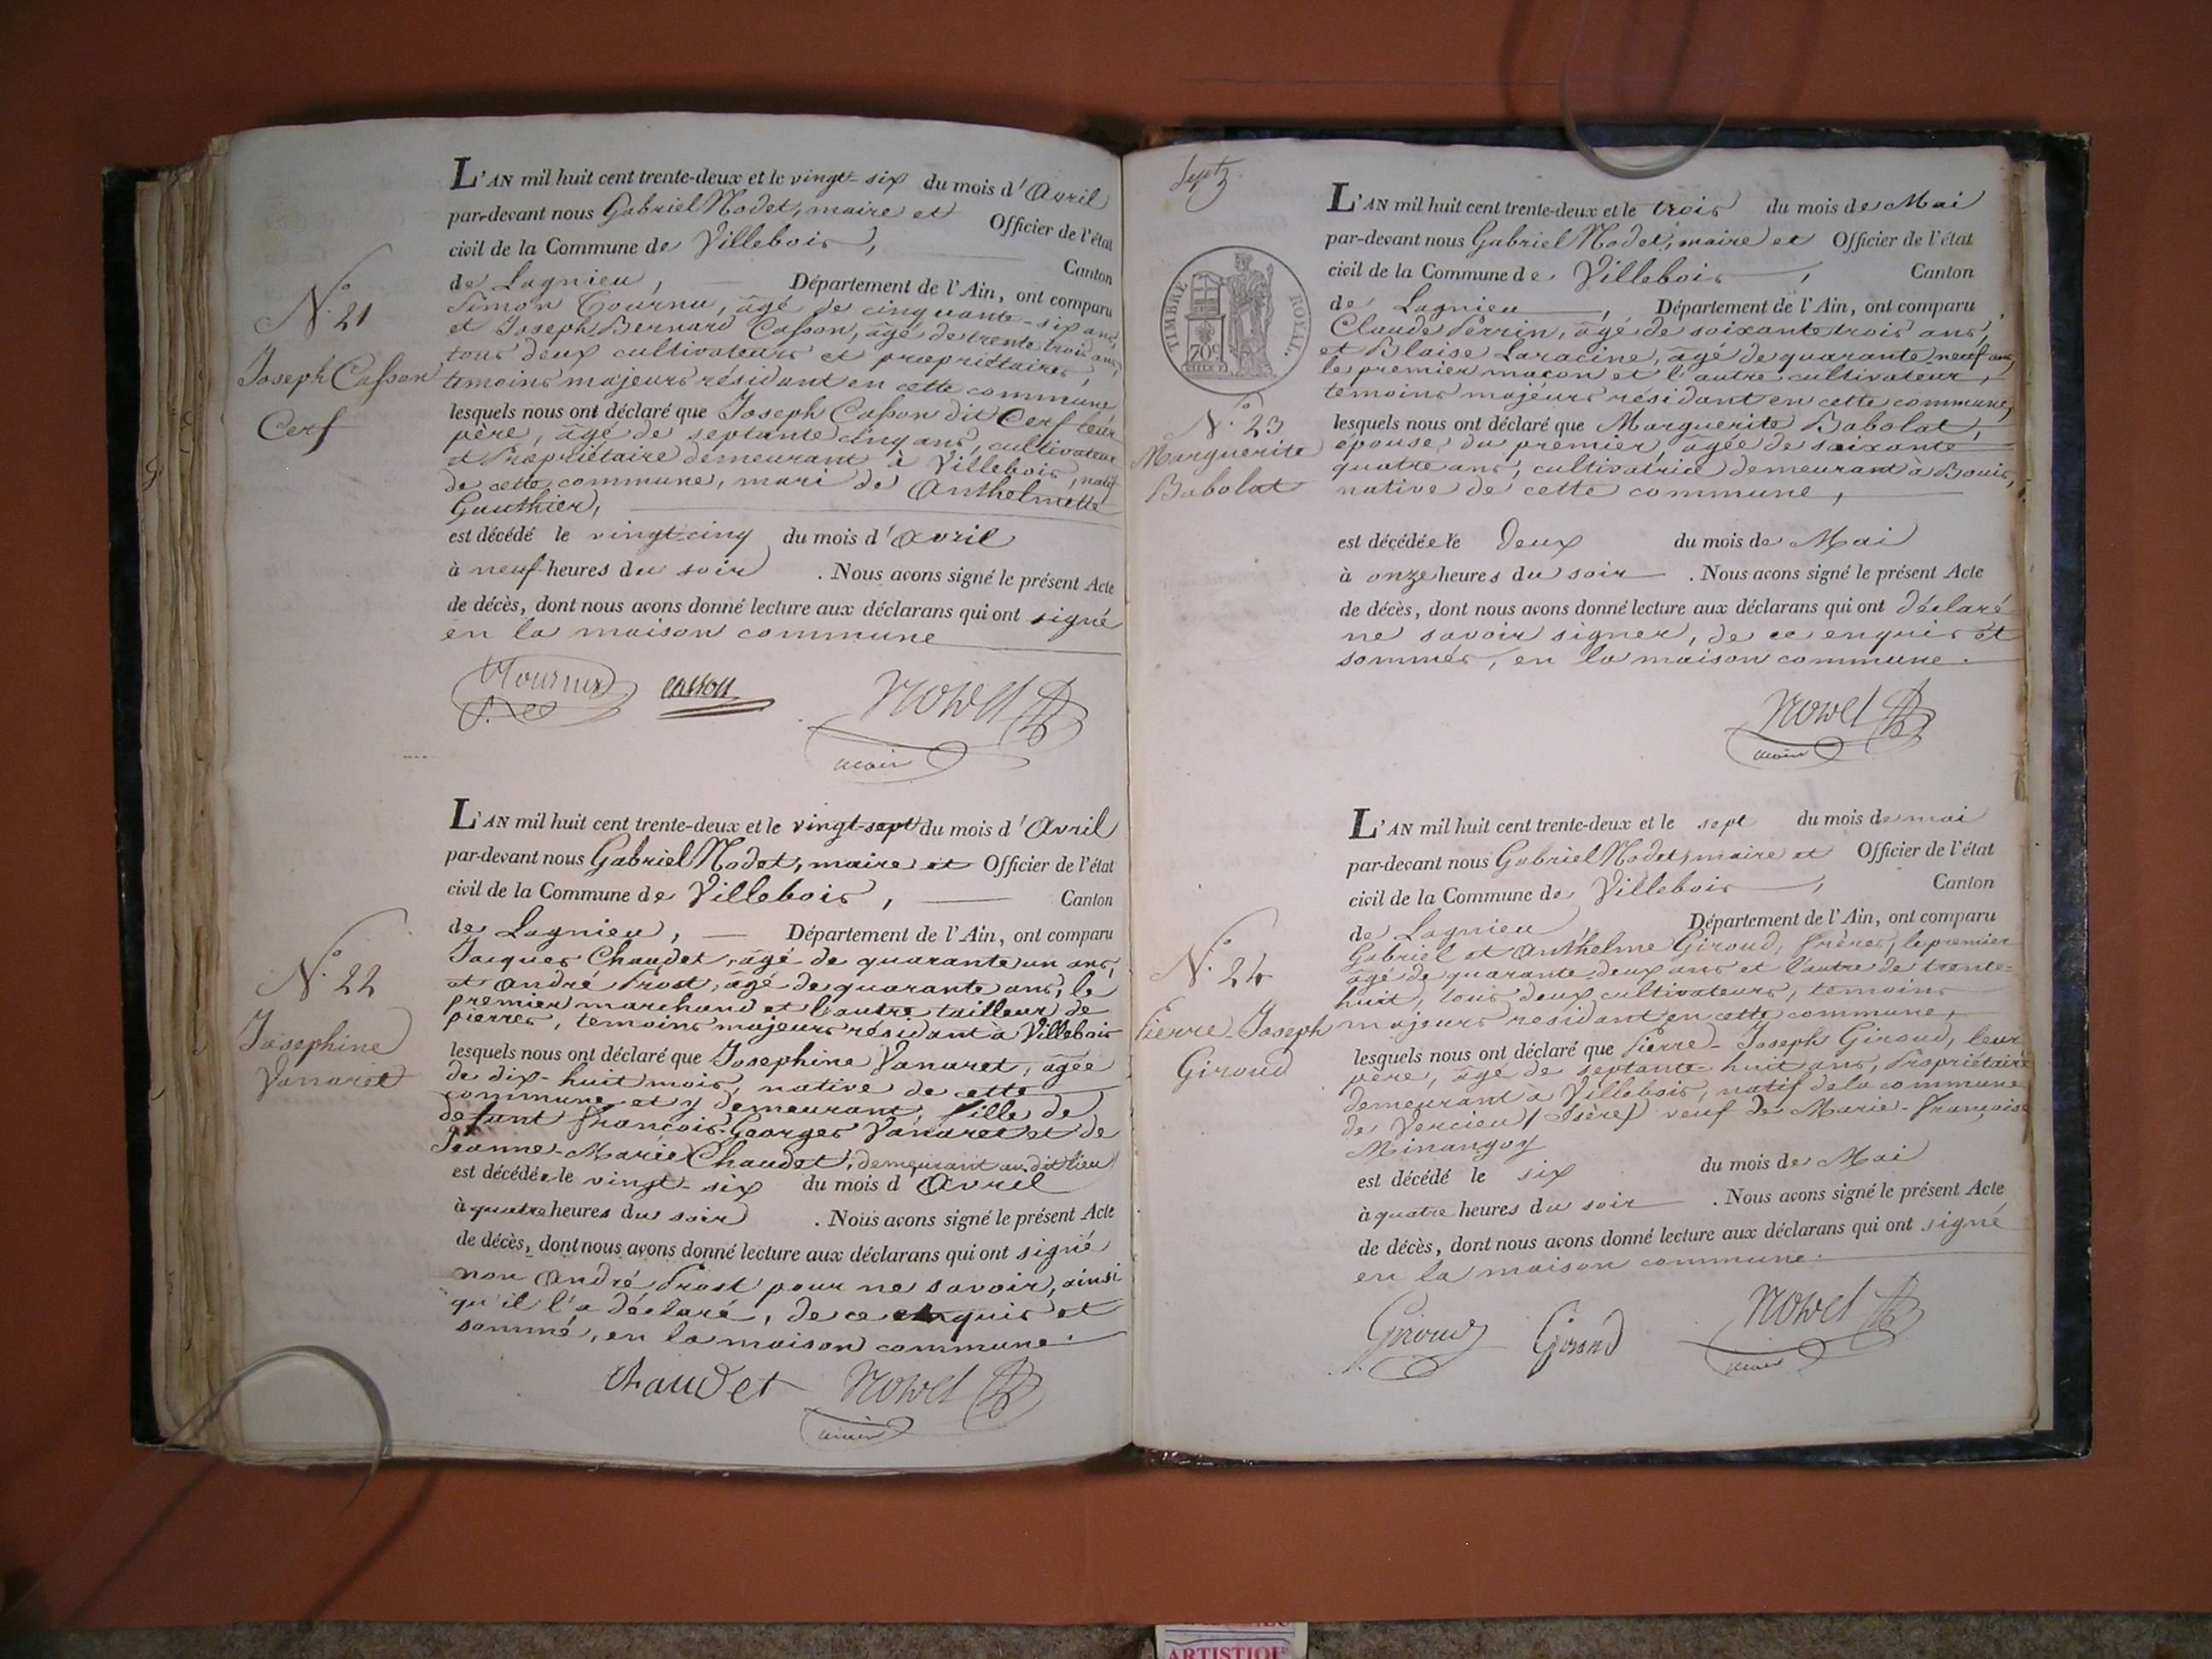 L'AN mil huit cent trente-deux et le vingt-six du mois d'Avril
par-devant nous Gabriel Nodet, maire et Officier de l'état
civil de la Commune de Villebois, Canton
de Lagnieu, Département de l'Ain, ont comparu
Simon Tournu, âgé de cinquante-six ans,
et Joseph Bernard Casson, âgé de trente trois ans,
tous deux cultivateurs et propriétaires,
temoins majeurs résidant en cette commune
lesquels nous ont déclaré que Joseph Casson dit Cerf leur
père, âgé de septante cinq ans, cultivateur
et Propriétaire demeurant à Villebois, natif
de cette commune, mari de Anthelmette
Gauthier,
est décédé le vingt-cinq du mois d'Avril
à neuf heures du soir. Nous avons signé le présent Acte
de décès, dont nous avons donné lecture aux déclarans qui ont signé
en la maison commune
N.° 21
Joseph Casson
Cerf
casson
maire
L'AN mil huit cent trente-deux et le vingt-sept du mois d'Avril
par-devant nous Gabriel Nodet, maire et Officier de l'état
civil de la Commune de Villebois, Canton
de Lagnieu, Département de l'Ain, ont comparu
Jacques Chaudet, âgé de quarante un ans,
et André Prost, âgé de quarante ans, le
premier marchand et l'autre tailleur de
pierres, temoins majeurs résidant à Villebois
lesquels nous ont déclaré que Josephine Vanaret, agée
de dix-huit mois, native de cette
commune et y demeurant, fille de
defunt François-Georges Vanaret et de
Jeanne-Marie Chaudet, demeurant au dit lieu
est décédée le vingt-six du mois d'Avril
à quatre heures du soir. Nous avons signé le présent Acte
de décès, dont nous avons donné lecture aux déclarans qui ont signé
non André Prost pour ne savoir, ainsi
qu'il l'a déclaré, de ce enquis et
sommé, en la maison commune.
N.° 22
Josephine
Vanaret
Chaudet
maire
Sept
TIMBRE ROYAL.
70c
L'AN mil huit cent trente-deux et le trois du mois de Mai
par-devant nous Gabriel Nodet, maire et Officier de l'état
civil de la Commune de Villebois, Canton
de Lagnieu, Département de l'Ain, ont comparu
Claude Perrin, âgé de soixante trois ans,
et Blaise Laracine, âgé de quarante-neuf ans,
le premier maçon et l'autre cultivateur,
temoins majeurs résidant en cette commune,
lesquels nous ont déclaré que Marguerite Babolat,
épouse du premier, âgée de soixante
quatre ans, cultivatrice demeurant à Bouis,
native de cette commune,
est décédée le deux du mois de Mai
à onze heures du soir. Nous avons signé le présent Acte
de décès, dont nous avons donné lecture aux déclarans qui ont déclaré
ne savoir signer, de ce enquis et
sommés, en la maison commune.
N.° 23
Marguerite
Babolat
maire
L'AN mil huit cent trente-deux et le sept du mois de mai
par-devant nous Gabriel Nodet, maire et Officier de l'état
civil de la Commune de Villebois, Canton
de Lagnieu, Département de l'Ain, ont comparu
Gabriel et Anthelme Giroud, frères, le premier
âgé de quarante-deux ans et l'autre de trente-
huit, tous deux cultivateurs, temoins
majeurs résidant en cette commune,
lesquels nous ont déclaré que Pierre-Joseph Giroud, leur
père, âgé de septante-huit ans, Propriétaire
demeurant à Villebois, natif de la commune
de Vercieu (Isère) veuf de Marie-Françoise
Minangoy
est décédé le six du mois de Mai
à quatre heures du soir. Nous avons signé le présent Acte
de décès, dont nous avons donné lecture aux déclarans qui ont signé
en la maison commune.
N.° 24
Pierre-Joseph
Giroud
Giroud Giroud
maire
ARTISTIQUE